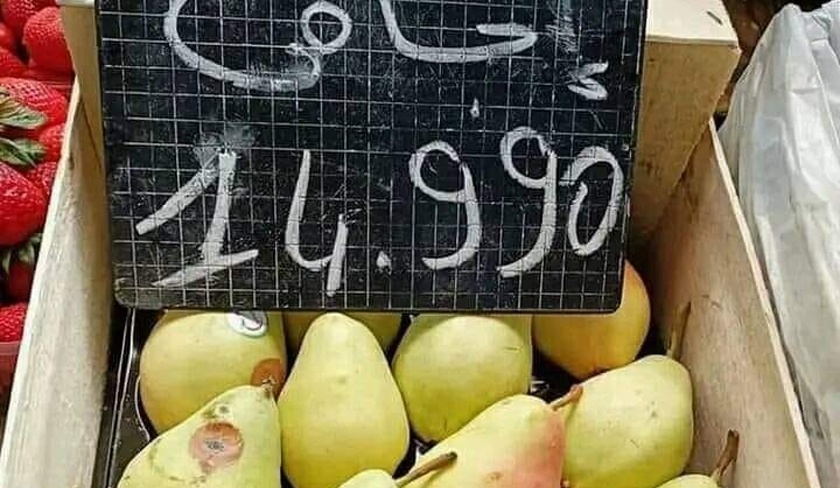 إجاص
14.990